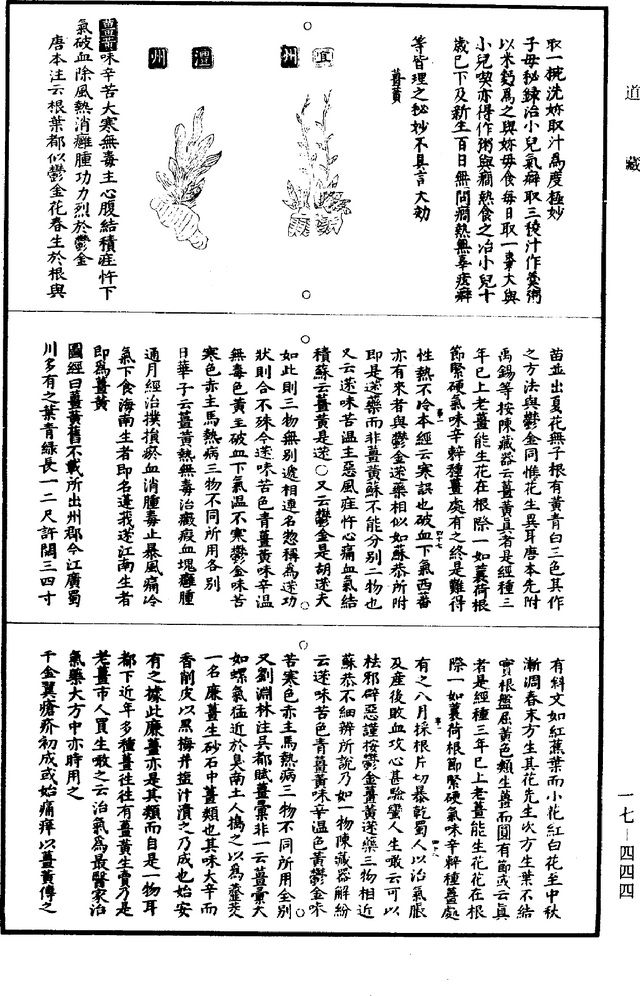 道藏
取一椀洗妳取汁爲度極妙
子母秘錄治小兒氣癖取三稜汁作羹粥
以米麪爲之與妳母食每日取一棗大與
小兒喫亦得作粥與癇熱食之治小兒十
歲已下及新生百日無問癇熱無辜痃癖
等皆理之秘妙不具言大効
薑黃
宜州
澧州
薑黃味辛苦大寒無毒主心腹結積疰忤下
氣破血除風熱消癰腫功力烈於鬱金
唐本注云根葉都似鬱金花春生於根與
苗並出夏花無子根有黃青白三色其作
之方法與鬱金同惟花生異耳唐本先附
禹錫等按陳藏器云薑黃真者是經種三
年已上老薑能生花在根際一如蘘荷根
節緊硬氣味辛辣種薑處有之終是難得
性熱不冷本經云寒誤也破血下氣西蕃
亦有來者與鬱金蒁藥相似如蘇恭所附
即是蒁藥而非薑黃蘇不能分別二物也
又云蒁味苦溫主惡風疰忤心痛血氣結
積蘇云薑黃是蒁○又云鬱金是胡蒁夫
如此則三物無別遞相連名惣稱爲蒁功
狀則合不殊今蒁味苦色青薑黃味辛溫
無毒色黃主破血下氣溫不寒鬱金味苦
寒色赤主馬熱病三物不同所用各別
日華子云薑黃熱無毒治癥瘕血塊癰腫
通月經治撲損瘀血消腫毒止暴風痛冷
氣下食海南生者即名蓬莪蒁江南生者
即爲薑黃
圖經曰薑黃舊不載所出州郡今江廣蜀
川多有之葉青綠長一二尺許闊三四寸
有斜文如紅蕉葉而小花紅白花至中秋
漸凋春末方生其花先生次方生葉不結
實根盤屈黃色類生薑而圓有節或云真
者是經種三年已上老薑能生花花在根
際一如蘘荷根節緊硬氣味辛辣種薑處
有之八月採根片切暴乾蜀人以治氣脹
及產後敗血攻心甚驗蠻人生啖云可以
祛邪辟惡謹按鬱金薑黃蒁藥三物相近
蘇恭不細辨所說乃如一物陳藏器解紛
云蒁味苦色青薑黃味辛溫色黃鬱金味
苦寒色赤主馬熱病三物不同所用全別
又劉淵林注吳都賦薑彙非一云薑彙大
如螺氣猛近於臭南土人擣之以爲虀菱
一名廉薑生砂石中薑類也其味大辛而
香削皮以黑梅并鹽汁漬之乃成也始安
有之據此廉薑亦是其類而自是一物耳
都下近年多種薑往往有薑黃生賣乃是
老薑市人買生啖之云治氣爲最醫家治
氣藥大方中亦時用之
千金翼瘡疥初成或始痛痒以薑黃傅之
一七—四四四